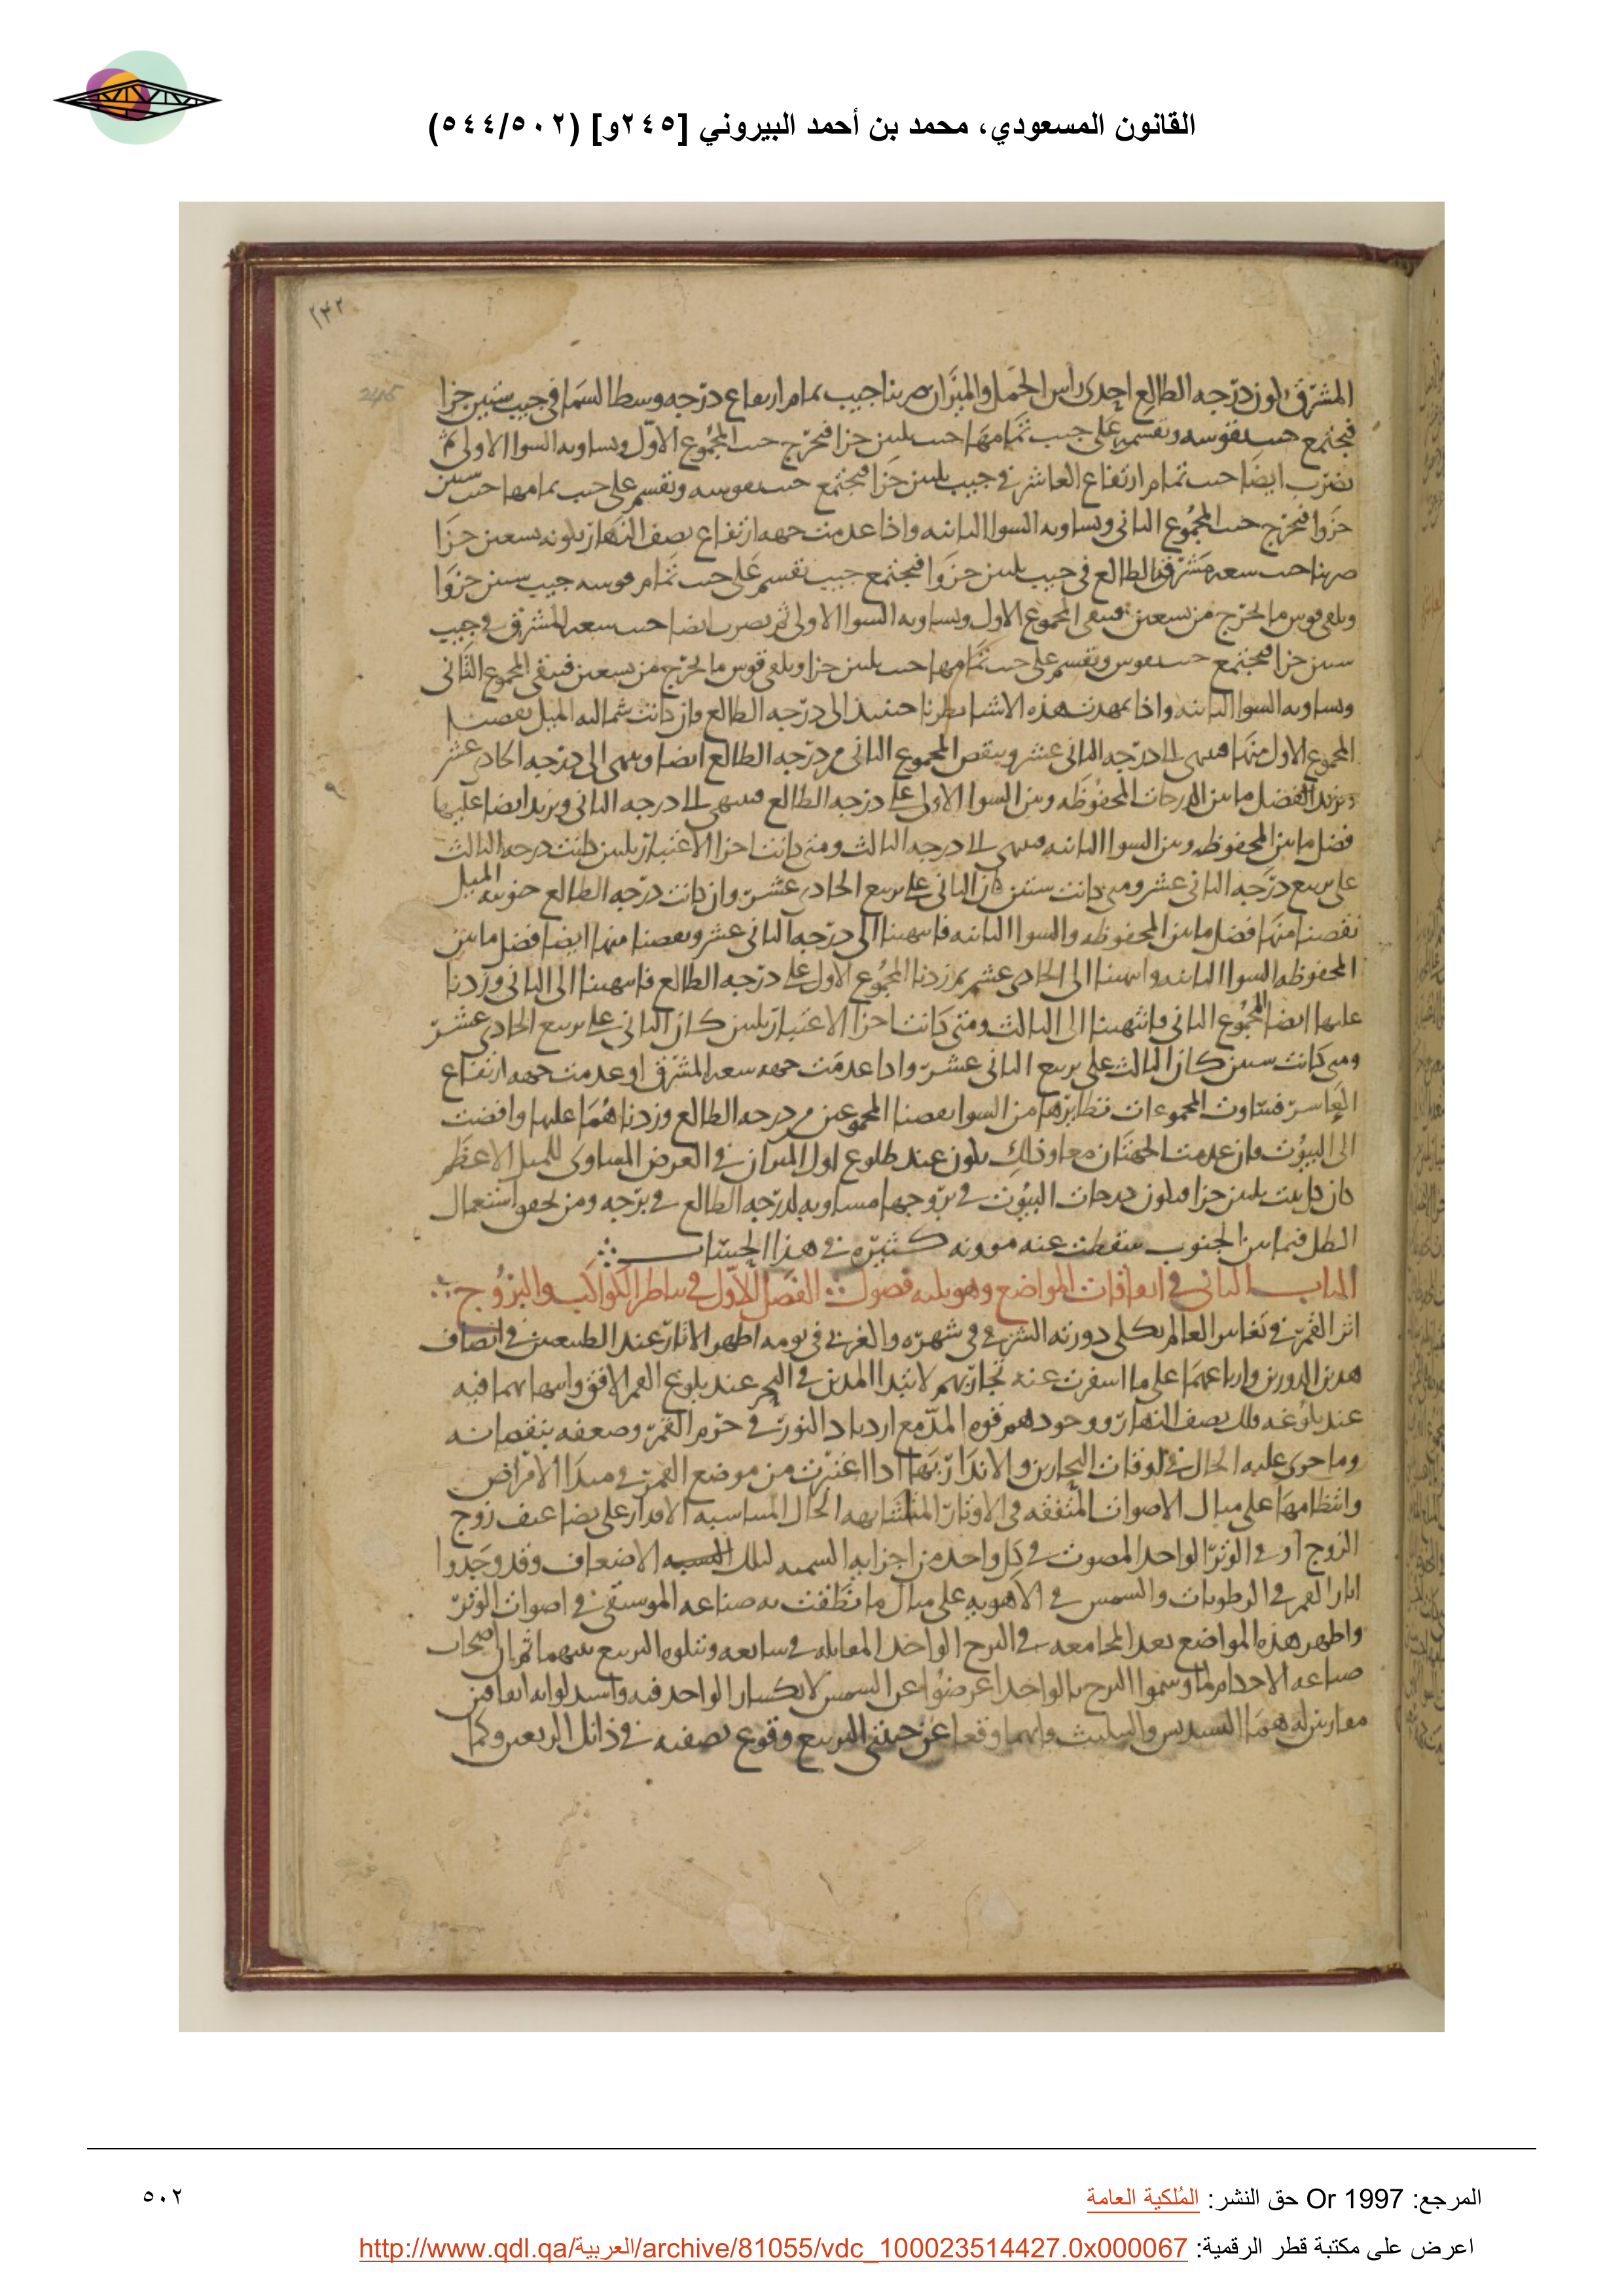 القانون المسعودي، محمد بن أحمد البيروني [٢٤٥و] (٥٠٢/٥٤٤)
٢٤٢
245
المشرق لكون درجه الطالع احدى راس الحمل والميزان ضربنا جيب تمام ارتفاع درجه وسط السما في جيب ستين جزا
فيجتمع جيب نقوسه ونقسمه على جيب تمامها جيب ثلثين جزا فيخرج جيب المجموع الاول ويساويه السوا الاولى ثم
نضرب ايضا جيب تمام ارتفاع العاشر في جيب ثلثين جزا فيجتمع جيب نقوسه ونقسم على جيب تمامها جيب ستين
جزوا فيخرج جيب المجموع الثاني ويساويه السوا الثانيه واذا عدمت جهه ارتفاع نصف النهار بكونه تسعين جزا
ضربنا جيب سعه مشرق الطالع في جيب ثلثين جزوا فيجتمع جيب نقسم على جيب تمام قوسه جيب ستين جزوا
ويلقى قوس ما يخرج من تسعين فيبقى المجموع الاول ويساويه السوا الاولى ثم نضرب ايضا جيب سعه المشرق في جيب
ستين جزا فيجتمع جيب نقوس ونقسم على جيب تمامها جيب ثلثين جزا ويلقى قوس ما يخرج من تسعين فيبقى المجموع الثاني
ويساويه السوا الثانيه واذا تمهدت هذه الاشيا نظرنا حينيذ الى درجه الطالع فان كانت شماليه الميل نقصنا
المجموع الاول منها فينتهى الى درجه الثاني عشر وينقص المجموع الثاني من درجه الطالع ايضا وينتهى الى درجه الحادى عشر
ونزيد الفضل ما بين الدرجات المحفوظه وبين السوا الاولى على درجه الطالع فينتهى الى درجه الثاني ونزيد ايضا عليها
فضل ما بين المحفوظه وبين السوا الثانيه فينتهى الى درجه الثالث ومتى كانت اجزا الاعتبار ثلثين كانت درجه الثالث
على تربيع درجه الثاني عشر ومتى كانت ستين كان الثاني على تربيع الحادى عشر وان كانت درجه الطالع جنوبيه الميل
نقصنا منها فضل ما بين المحفوظه والسوا الثانيه فانتهينا الى درجه الثاني عشر ونقصنا منها ايضا فضل ما بين
المحفوظه السوا الثانيه وانتهينا الى الحادى عشر ثم زدنا المجموع الاول على درجه الطالع فانتهينا الى الثاني وزدنا
عليها ايضا المجموع الثاني فانتهينا الى الثالث ومتى كانت اجزا الاعتبار ثلثين كان الثاني على تربيع الحادى عشر
ومتى كانت ستين كان الثالث على تربيع الثاني عشر واذا عدمت جهه سعه المشرق او عدمت جهه ارتفاع
العاشر فتساوت المجموعات نظايرها من السوا نقصنا المجموعين من درجه الطالع وزدناهما عليها وافضت
الى البيوت وان عدمت الجهتان معا وذلك يكون عند طلوع اول الميزان في العرض المساوى للميل الاعظم
كان كانت ثلثين جزا فيكون درجات البيوت في بروجها مساويه لدرجه الطالع في برجه ومن تحقق استعمال
الظل فيما بين الجنوب سقطت عنه موونه كثيره في هذا الحساب
الباب الثاني في اتفاقات المواضع وهو ثلثه فصول الفصل الاول في تناظر الكواكب والبروج
اثر القمر في تغاير العالم بكلى دورته الشرقي في شهره والغربى في يومه اظهر الاثار عند الطبيعيين في انصاف
هذين الدورين وارباعهما على ما اسفرت عنه تجاربهم لابتدا المدين في البحر عند بلوغ القمر الافق وانتهايهما فيه
عند بلوغه فلك نصف النهار ووجودهم قوه المد مع ازدياد النور في جرم القمر وضعفه بنقصانه
وما جرى عليه الحال في اوقات البحارين والانذار بها اذا اعتبرت من موضع القمر في مبدا الامراض
وانتظامها على مثال الاصوات المتفقه في الاوتار المتشابهه الحال المتناسبه الاقدار على تضاعيف زوج
الزوج او في الوتر الواحد المصوت في كل واحد من اجزايه السميه لتلك النسبه الاضعاف وقد وجدوا
اثار القمر في الرطوبات والشمس في الاهويه على مثال ما نطقت به صناعه الموسيقى في اصوات الوتر
واظهر هذه المواضع بعد المجامعه في البرج الواحد المقابله في سابعه وتتلوه التربيع بينهما ثم ان اصحاب
صناعه الاحكام لما وسموا البرج بالواحد اعرضوا عن السمس لانكسار الواحد فيه واستدلوا به اتفاقين
مقارنين له هما التسديس والتثليث وانهما وقعا عن جنبتى التربيع وقوع نصفيه في ذانك الربعين وكما
المرجع: Or 1997 حق النشر: المُلكية العامة
٥٠٢
اعرض على مكتبة قطر الرقمية: http://www.qdl.qa/العربية/archive/81055/vdc_100023514427.0x000067